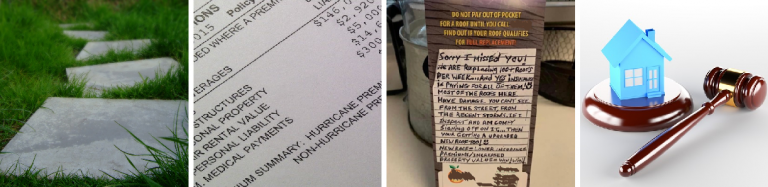 ONS
Policy
015
DED WHERE A PREM
LI
$146,0
$2,920
$5,00
$14,6
$300
ERAGES
STRUCTURES
ONAL PROPERTY
R RENTAL VALUE
PERSONAL LIABILITY
MEDICAL PAYMENTS
UM SUMMARY: HURRICANE PREM
NON-HURRICANE PRE
DO NOT PAY OUT OF POCKET
FOR A ROOF UNTIL YOU CALL
FIND OUT IF YOUR ROOF QUALIFIES
FOR FULL REPLACEMENT
Sorry I missed you!
WE ARE REPLACING 100+ ROOFS
PER WEEK AND YES INSURANCE
IS PAYING FOR ALL OF THEM
MOST OF THE ROOFS HERE
HAVE DAMAGE. YOU CAN'T SEE
FROM THE STREET, FROM
THE RECENT STORMS. LET'S
INSPECT AND AM
SIGNING OFF ON IT... THEN
YOUR GETTING A UPGRADED
NEW ROOF TOO!
NEW ROOF = LOWER INSURANCE
PREMIUMS/INCREASED
PROPERTY VALUE